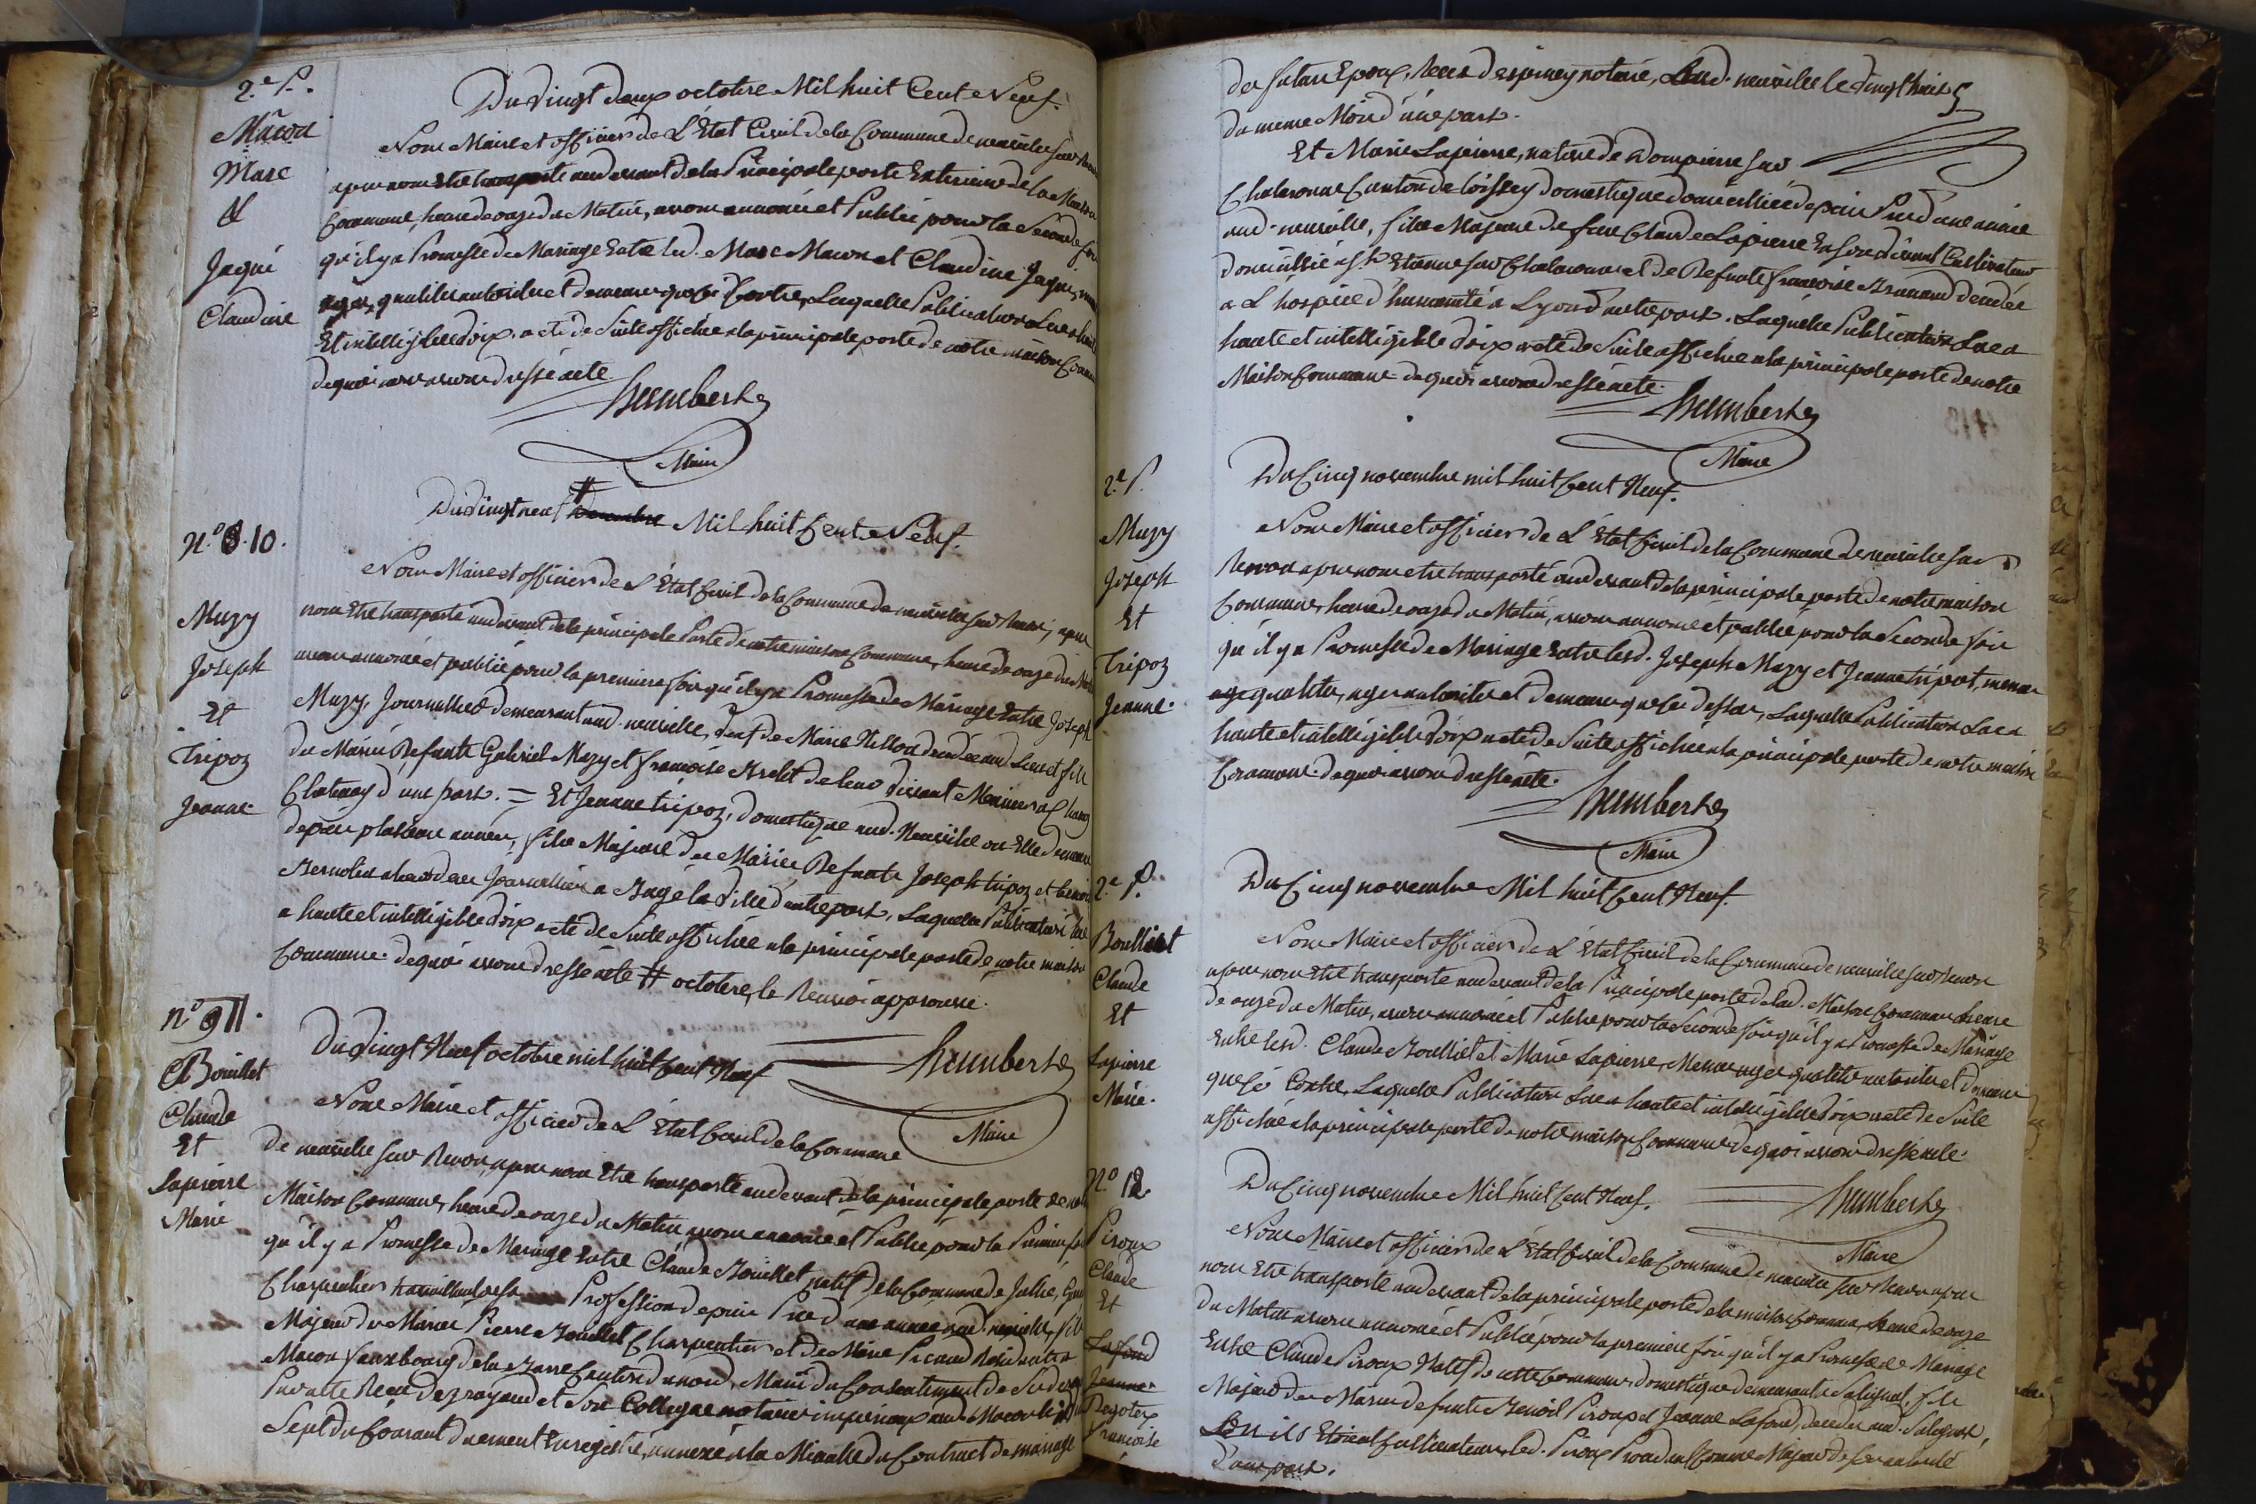 2.e P.
Mâcon
Marc
&
Jaqui
Claudine
Du vingt deux octobre Mil huit Cent Neuf.
Nous Maire et officier de L'Etat Civil de la Commune de neuville sur Renon
apres nous etre transporté audevant de la Principale porte Exterieure de la Maison
Commune, heure de onze du Matin, avons annoncé et Publié pour la Seconde fois
qu'il y a Promesse de Mariage Entre led. Marc Macon et Claudine Jaqui, memes
qualités autorités et demeures que cy Contre, Laquelle Publication Lue a haute
Et intelligible voix, a eté de Suite affichée a la principale porte de notre maison Commune
de quoi avons dressé acte
humbert
Maire
N.o 10.
Muzy
Joseph
Et
Tripoz
Jeanne
Du vingt neuf # Mil huit Cent Neuf.
Nous Maire et officier de L'Etat Civil de la Commune de neuville sur Renon, apres
nous etre transporté audevant de la principale Porte de notre maison Commune, heure de onze du Matin
avons annoncé et publié pour la premiere fois qu'il y a Promesse de Mariage Entre Joseph
Muzy, Journallier demeurant aud. neuville, veuf de Marie Nillon decedée aud Lieu et fils
de Mariés Defunts Gabriel Muzy et françoise Brelit de leur vivant Meuniers a Chanoz
Chatenay d'une part. = Et Jeanne tripoz, domestique aud. Neuville ou Elle demeure
depuis plusieurs années, fille Majeure de Mariés Defunts Joseph tripoz et
Bernolin a leur deces Journalliers a Bagé la Ville d'autre part, Laquelle Publication Lue
a haute et intelligible voix a eté de Suite affichée a la principale porte de notre maison
Commune de quoi avons dressé acte # octobre, le Renvoi approuvé.
humbert
Maire
N.o 11.
Bouillet
Claude
Et
Lapierre
Marie
Du vingt Neuf octobre mil huit Cent Neuf
Nous Maire et officier de L'Etat Civil de la Commune
de neuville sur Renon, apres nous etre transporté audevant de la principale porte de notre
Maison Commune, heure de onze du Matin avons annoncé et Publié pour la Premiere fois
qu'il y a Promesse de Mariage Entre Claude Bouillet natif de la Commune de Jullié,
Charpentier travaillant de sa Profession depuis Pres d'une année aud. neuville, fils
Majeur de Mariés Pierre Bouillet Charpentier et de Marie Picard Residents a
Macon fauxbourg de la Barre Canton du nord, Muni du Consentement de
Par acte Recu Degrayaud et Son Collegue notaires imperiaux aud. Macon le
Sept du Courant duement Enregistré, annexé a la Minutte du Contract de mariage
des futurs Epoux, Recu Despiney notaire, aud. neuville le vingt huit
du meme Mois d'une part.
Et Marie Lapierre, native de Dompierre sur
Chalaronne Canton de toissey domestique domicilliée depuis Pres d'une année
aud. neuville, fille Majeure de feu Claude Lapierre En son vivant Cultivateur
domicillié a St Etienne sur Chalaronne et de Defunte françoise Granand decedée
a L'hospice d'humanité a Lyon d'autre part. Laquelle Publication Lue a
haute et intelligible voix a eté de Suite affichée a la principale porte de notre
Maison Commune de quoi avons dressé acte.
humbert
Maire
2.e P.
Muzy
Joseph
Et
Tripoz
Jeanne.
Du Cinq novembre mil huit Cent Neuf.
Nous Maire et officier de L'Etat Civil de la Commune de neuville sur
Renon apres nous etre transporté audevant de la principale porte de notre maison
Commune, heure de onze du Matin, avons annoncé et publié pour la Seconde fois
qu'il y a Promesse de Mariage Entre lesd. Joseph Muzy et Jeanne tripot, memes
qualités, ages autorités et demeures que cy dessus, Laquelle Publication Lue a
haute et intelligible voix a eté de Suite affichée a la principale porte de notre maison
Commune. de quoi avons dressé acte.
humbert
Maire
2.e P.
Boulliet
Claude
Et
Lapierre
Marie.
Du Cinq novembre Mil huit Cent Neuf.
Nous Maire et officier de L'Etat Civil de la Commune de neuville sur Renon
apres nous etre transporté audevant de la Principale porte de lad. Maison Commune heure
de onze du Matin, avons annoncé et Publié pour la Seconde fois qu'il y a Promesse de Mariage
Entre lesd. Claude Boulliet et Marie Lapierre, Memes ages qualités autorités et demeures
que cy Contre, Laquelle Publication Lue a haute et intelligible voix a eté de Suite
affichée a la principale porte de notre maison Commune de quoi avons dressé acte.
humbert
Maire
N.o 12.
Piroux
Claude
Et
Lafond
Jeanne
Françoise
Du Cinq novembre Mil huit Cent Neuf.
Nous Maire et officier de L'Etat Civil de la Commune de neuville sur Renon apres
nous etre transporté audevant de la principale porte de la maison Commune, heure de onze
du Matin avons annoncé et Publié pour la premiere fois qu'il y a Promesse de Mariage
Entre Claude Piroux Natif de cette Commune domestique demeurant a Salignat, fils
Majeur de Mariés defunts Benoit Piroux et Jeanne Lafond, decedés aud. Salignat,
ou ils Etoient Cultivateurs, led. Piroux Procedant Comme Majeur de son autorité
d'une part.